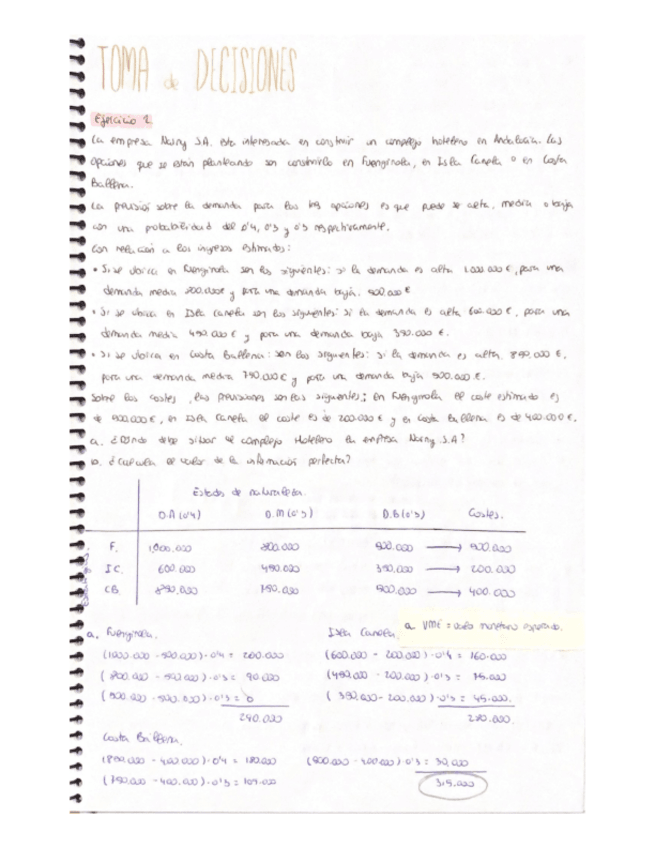 TOMA de DECISIONES
Ejercicio 1
La empresa Nosny S.A. está interesada en construir un complejo hotelero en Andalucía. Las
opciones que se están planteando son construirlo en Fuengirola, en Isla Canela o en Costa
Ballena.
La previsión sobre la demanda para las tres opciones es que puede ser alta, media o baja
con una probabilidad del 0'4, 0'3 y 0'3 respectivamente.
Con relación a los ingresos estimados:
• Si se ubica en Fuengirola son los siguientes: si la demanda es alta 1.000.000 €, para una
demanda media 800.000€ y para una demanda baja, 500.000 €
• Si se ubica en Isla Canela son los siguientes: si la demanda es alta 600.000 €, para una
demanda media 450.000 € y para una demanda baja 350.000 €.
• Si se ubica en Costa Ballena: son los siguientes: si la demanda es alta 850.000 €,
para una demanda media 750.000€ y para una demanda baja 500.000 €.
Sobre los costes, las previsiones son las siguientes; en Fuengirola el coste estimado es
de 500.000 €, en Isla Canela el coste es de 200.000 € y en Costa Ballena es de 400.000 €.
a. ¿Dónde debe situar el complejo Hotelero la empresa Nosny S.A?
b. ¿Calcula el valor de la información perfecta?
Estados de naturaleza.
D.A (0'4) D.M (0'3) D.B (0'3) Costes.
F. 1.000.000 800.000 500.000 → 500.000
I.C. 600.000 450.000 350.000 → 200.000
C.B. 850.000 750.000 500.000 → 400.000
a. VME = valor monetario esperado.
a. Fuengirola.
(1000.000 - 500.000) · 0'4 = 200.000
(800.000 - 500.000) · 0'3 = 90.000
(500.000 - 500.000) · 0'3 = 0
240.000
Isla Canela.
(600.000 - 200.000) · 0'4 = 160.000
(450.000 - 200.000) · 0'3 = 75.000
(350.000 - 200.000) · 0'3 = 45.000.
280.000.
Costa Ballena.
(850.000 - 400.000) · 0'4 = 180.000
(750.000 - 400.000) · 0'3 = 105.000
(500.000 - 400.000) · 0'3 = 30.000
315.000